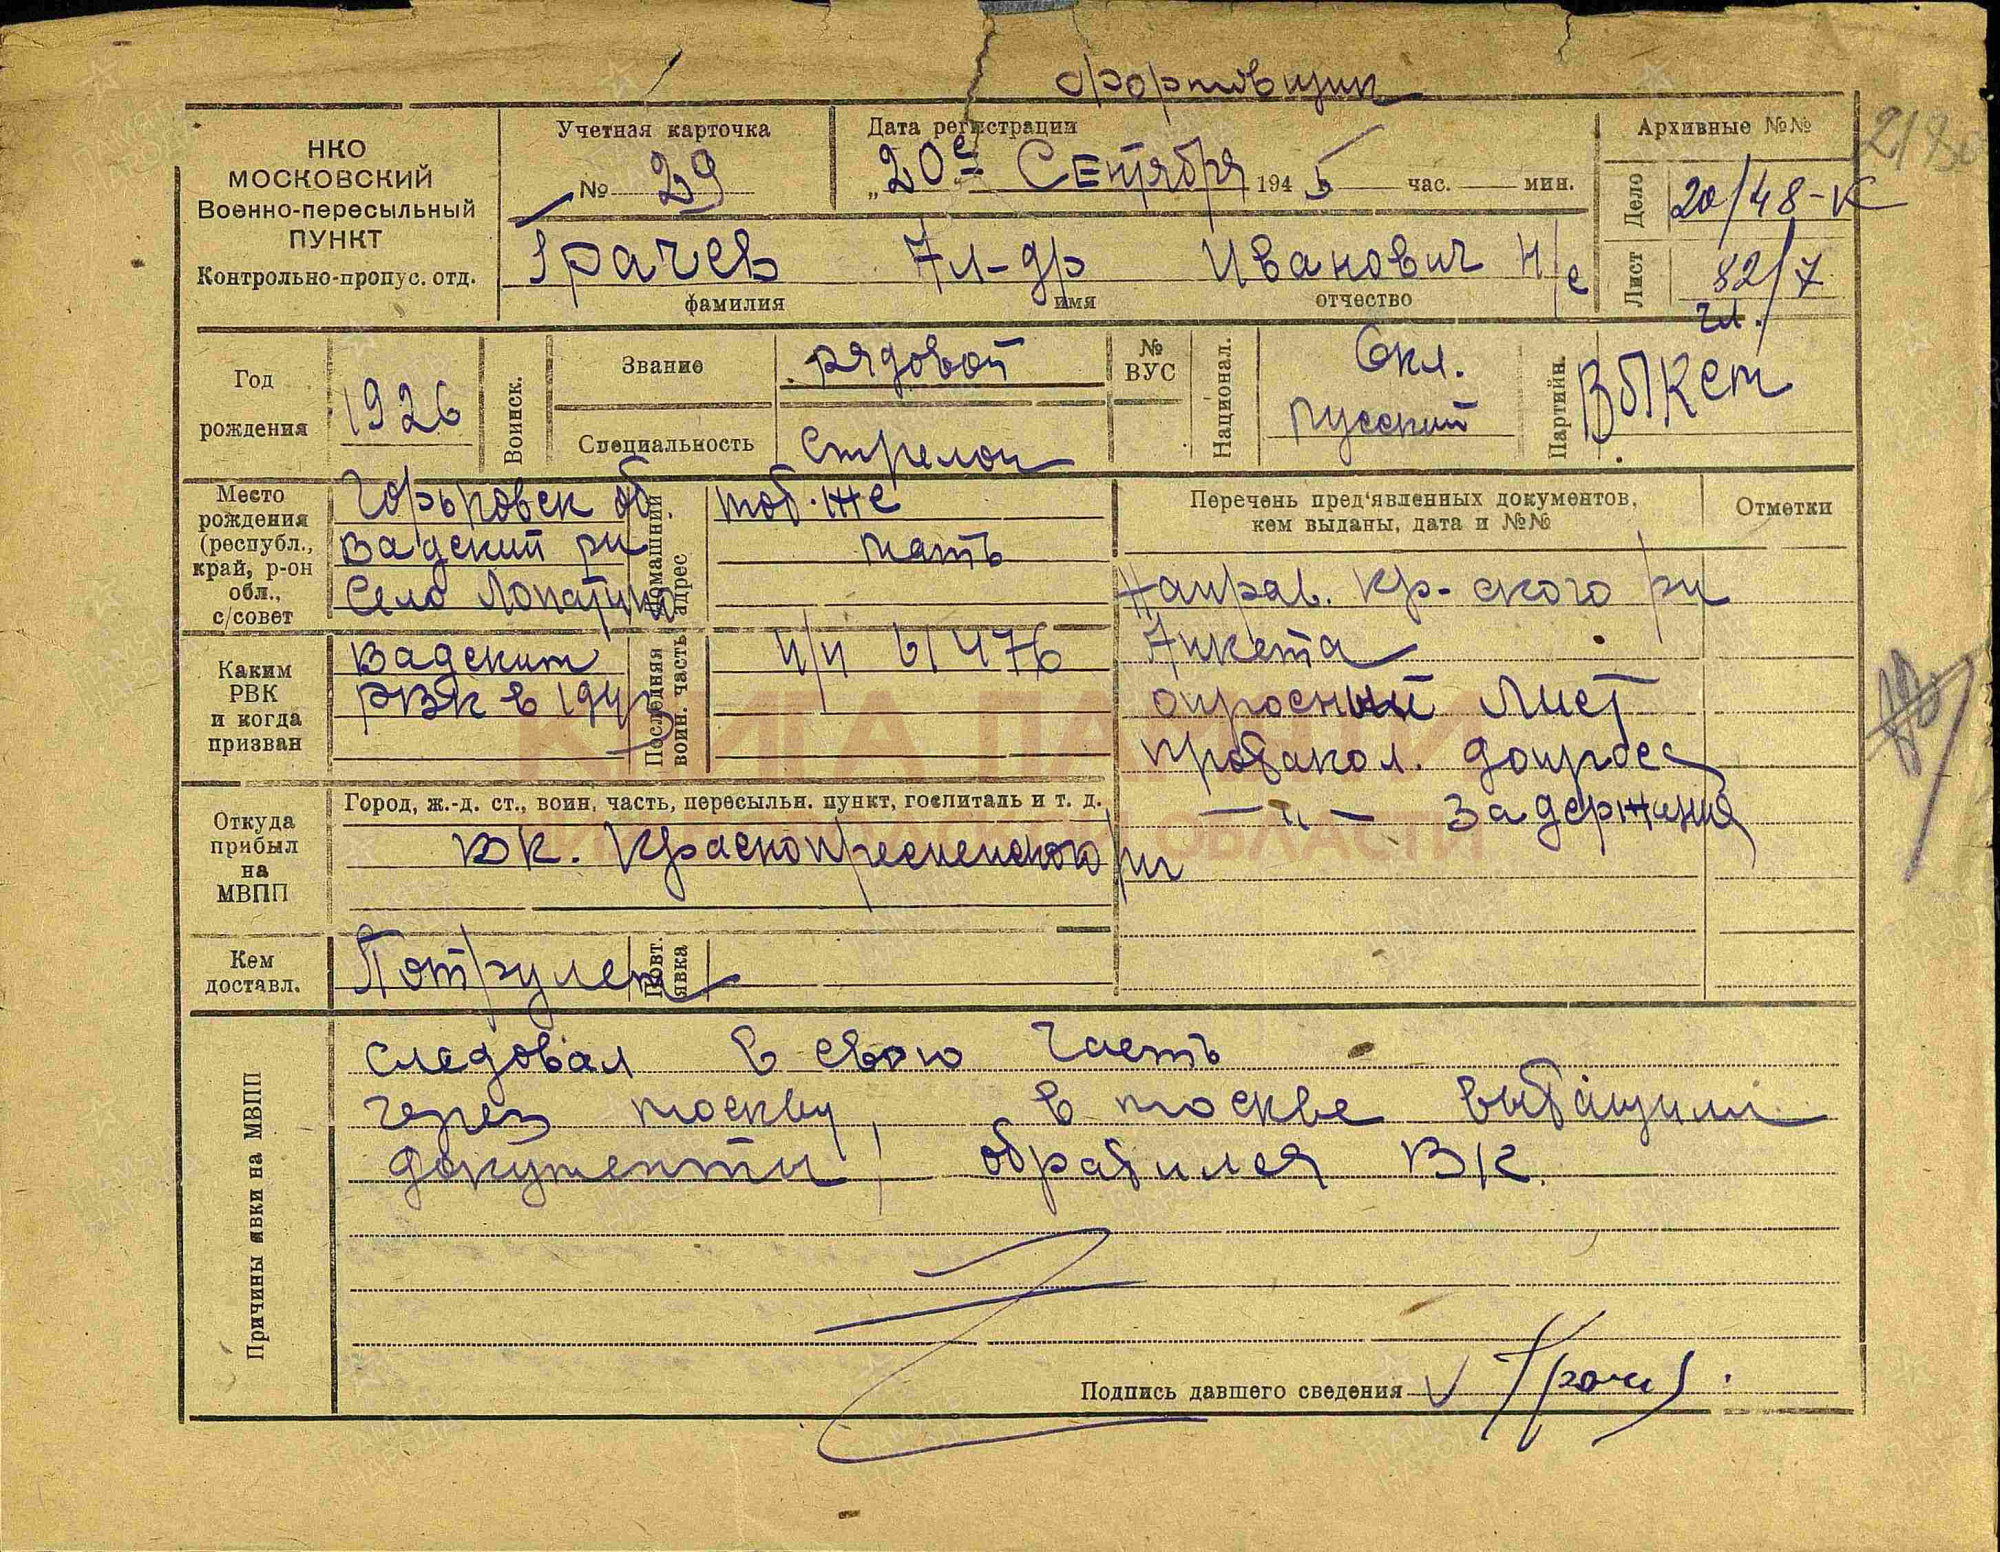 НКО
МОСКОВСКИЙ
Военно-пересыльный
ПУНКТ
Контрольно-пропус. отд.
Учетная карточка
№ 29
Дата регистрации
„20е Сентября 1945 час. мин.
Архивные №№
Дело 20/48-К
Лист 82/7
Грачев Ал-др Иванович Н/е
фамилия имя отчество
Год рождения 1926
Воинск.
Звание рядовой
Специальность Стрелок
№ ВУС
Национал. русский
Партийн.
Место рождения (республ., край, р-он обл., с/совет
Горьковск об.
Вадский рн
Село Лопатино
Домашний адрес
тоб-же
мать
Каким РВК и когда призван
Вадским
РВК в 1943
Последняя воин. часть
п/п 61476
Перечень пред'явленных документов, кем выданы, дата и №№
Отметки
Направ. Кр-ского рн
Анкета
опросный Лист
протакол. допроса
— „ — задержания
Откуда прибыл на МВПП
Город, ж.-д. ст., воин. часть, пересыльн. пункт, госпиталь и т. д.
ВК. Краснопресненского рн
Кем доставл.
Потрулем
Повт. явка
Причины явки на МВПП
следовал в свою часть
через москву, в москве вытащили
документы, обратился ВК.
Подпись давшего сведения
КНИГА ПАМЯТИ
НИЖЕГОРОДСКОЙ ОБЛАСТИ